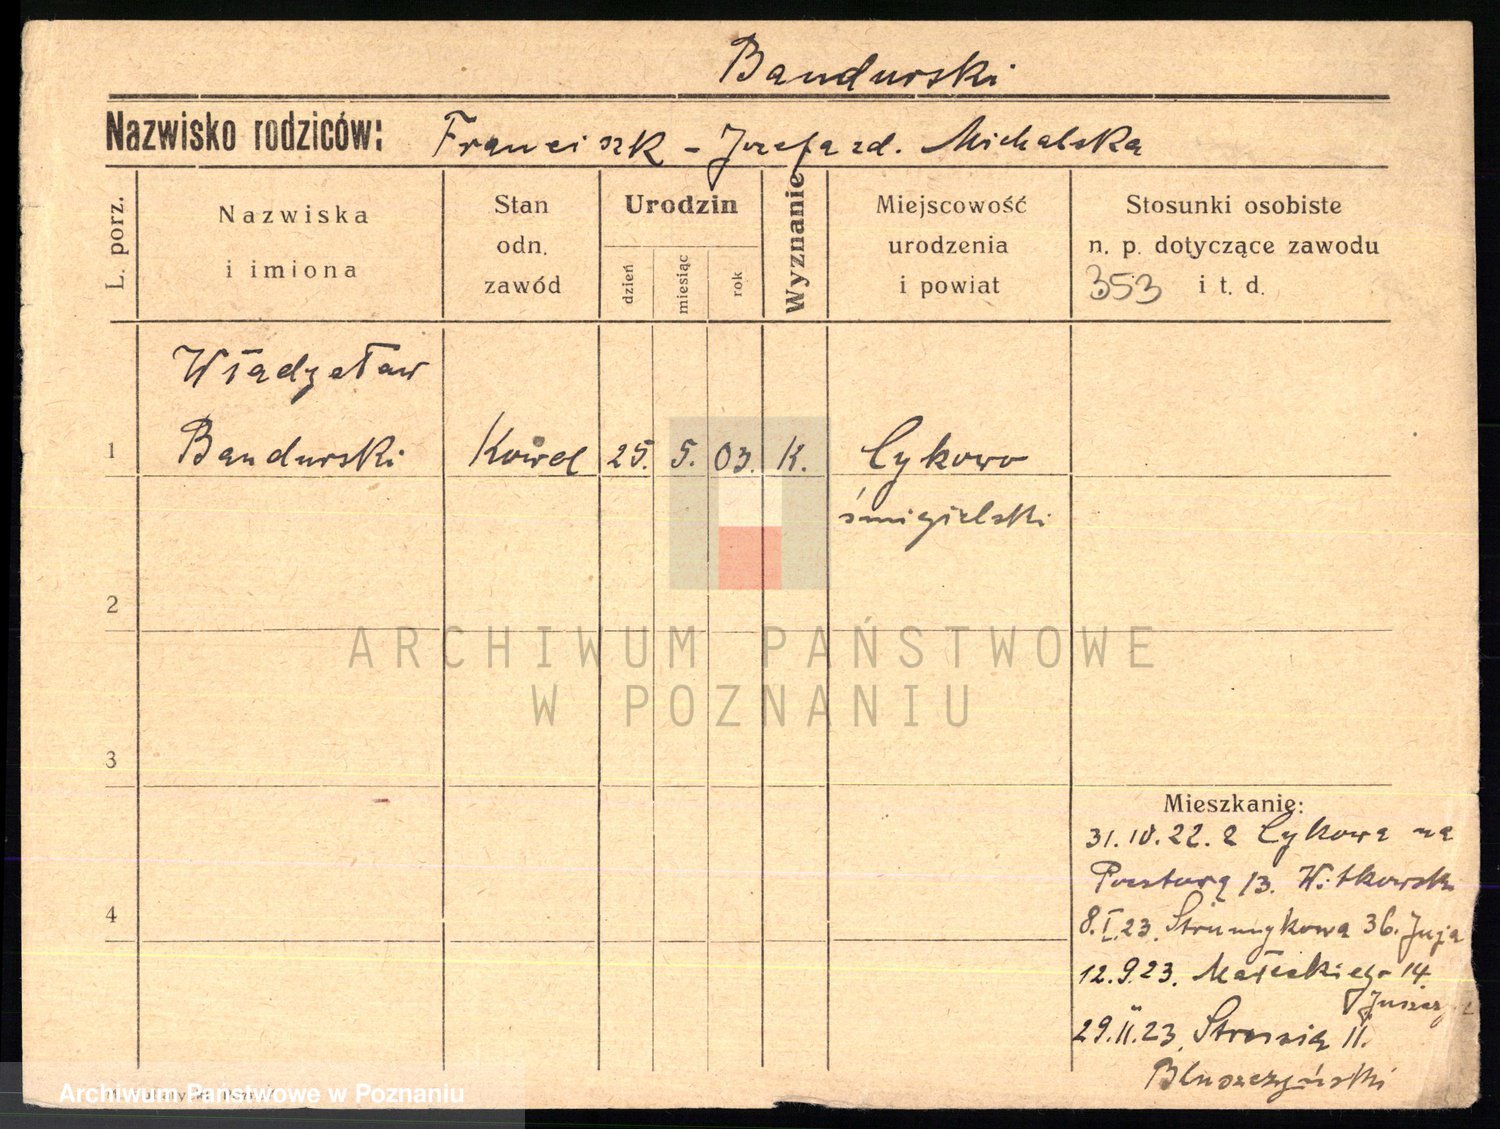 Bandurski
Nazwisko rodziców: Franciszk - Jozefa zd. Michalska
L. porz.
Nazwiska
i imiona
Stan
odn.
zawód
Urodzin
dzień
miesiąc
rok
Wyznanie
Miejscowość
urodzenia
i powiat
Stosunki osobiste
n. p. dotyczące zawodu
353 i t. d.
Władysław
1 Bandurski Kowal 25. 5. 03. K. Łykowo
śmigielski
2
ARCHIWUM PAŃSTWOWE
W POZNANIU
3
Mieszkanie:
31.10.22. z Łykowa na
13. Witkowski
4
8.I.23. Strumykowa 36.
12.9.23. Małeckiego 14.
29.11.23. 11.
Bluszczyński
Archiwum Państwowe w Poznaniu